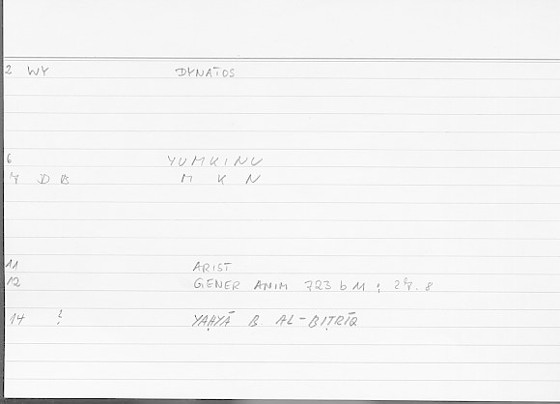 2 WY DYNATOS
6 YUMKINU
7 D B M K N
11 ARIST
12 GENER ANIM 723 b 11 ; 27.8
14 ? YAḤYĀ B AL-BIṬRĪQ